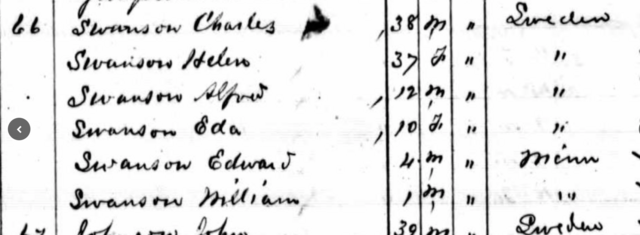 66 Swanson Charles , 38 m " Sweden
Swanson Helen 37 F " "
Swanson Alfred , 12 m " "
Swanson Eda , 10 F " "
Swanson Edward 4 m " Minn
Swanson William 1 m " "
67 Johnson John 39 m " Sweden